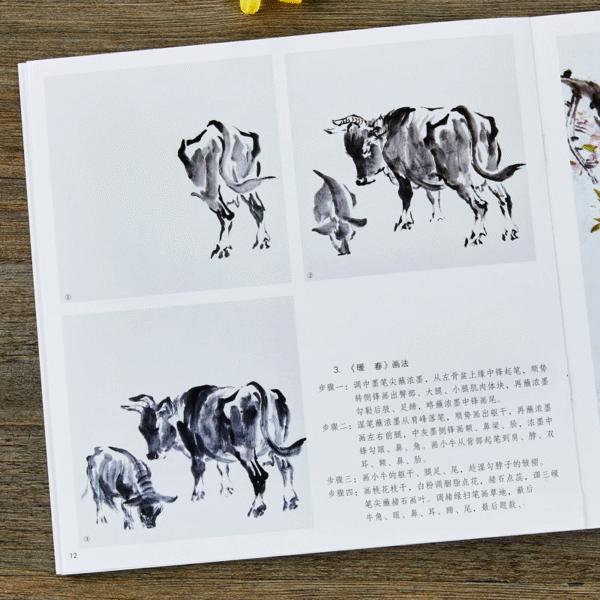 ①
②
③
3. 《暖 春》画法
步骤一：调中墨笔尖蘸浓墨，从左骨盆上缘中锋起笔，顺势
转侧锋画出臀部、大腿、小腿肌肉体块，再蘸浓墨
勾勒后肢、足蹄，略蘸浓墨中锋画尾。
步骤二：湿笔蘸浓墨从肩峰落笔，顺势画出躯干，再蘸浓墨
画左右前腿，中灰墨侧锋画颊、鼻梁、脸，浓墨中
锋勾眼、鼻、角。画小牛从背部起笔到肩、脖、双
耳、颊、鼻、脸。
步骤三：画小牛的躯干、腿足、尾，处湿勾脖子的皱褶。
步骤四：画桃花枝干，白粉调胭脂点花，赭石点蕊，调三绿
笔尖蘸赭石画叶。调赭绿扫笔画草地，最后
牛角、眼、鼻、耳、蹄、尾，最后题款。
12